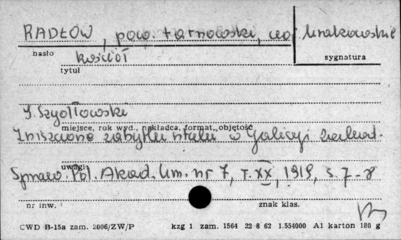 RADŁÓW, pow. tarnowski, woj. krakowskie
hasło
sygnatura
kościół
tytuł
S. Szydłowski
miejsce, rok wyd., nakładca, format, objętość
Zniszczone zabytki sztuki w Galicyi zachod.
uwagi
Spraw. Pol. Akad. Um. nr 7, T. XX, 1915, s. 7-8
nr inw.
znak klas.
CWD B-15a zam. 2006/ZW/P kzg 1 zam. 1564 22 8 62 1.554000 A1 karton 180 g